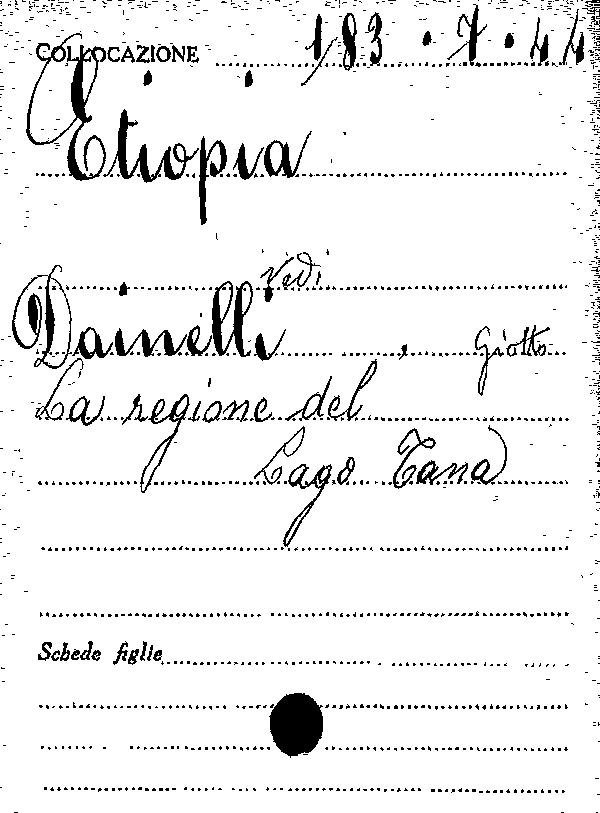 COLLOCAZIONE 183 · 7 · 44
Etiopia
Vedi
Dainelli, Giotto
La regione del
Lago Tana
Schede figlie